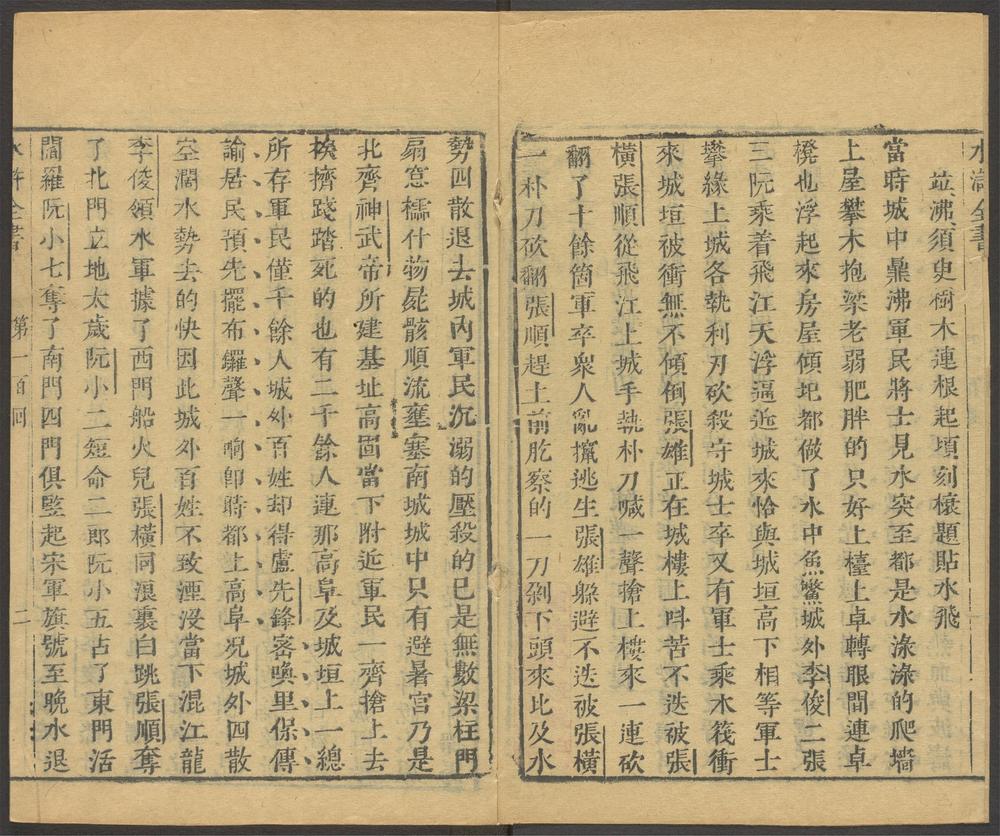 水滸全書
竝沸須臾樹木連根起頃刻榱題貼水飛
當時城中鼎沸軍民將士見水突至都是水淥淥的爬墻
上屋攀木抱梁老弱肥胖的只好上檯上卓轉眼間連卓
櫈也浮起來房屋傾圯都做了水中魚鱉城外李俊二張
三阮乘着飛江天浮逼近城來恰與城垣高下相等軍士
攀緣上城各執利刃砍殺守城士卒又有軍士乘木筏衝
來城垣被衝無不傾倒張雄正在城樓上呌苦不迭被張
橫張順從飛江上城手執朴刀喊一聲搶上樓來一連砍
翻了十餘箇軍卒衆人亂攛逃生張雄躱避不迭被張橫
一朴刀砍翻張順趕上前肐察的一刀剁下頭來比及水
勢四散退去城內軍民沉溺的壓殺的已是無數梁柱門
扇窓櫺什物屍骸順流壅塞南城城中只有避暑宮乃是
北齊神武帝所建基址高固當下附近軍民一齊搶上去
挨擠踐踏死的也有二千餘人連那高阜及城垣上一總
所存軍民僅千餘人城外百姓却得盧先鋒密喚里保傳
諭居民預先擺布鑼聲一響卽時都上高阜況城外四散
空濶水勢去的快因此城外百姓不致湮沒當下混江龍
李俊領水軍據了西門船火兒張橫同浪裏白跳張順奪
了北門立地太歲阮小二短命二郎阮小五占了東門活
閻羅阮小七奪了南門四門俱竪起宋軍旗號至晚水退
水滸全書 第一百回 二